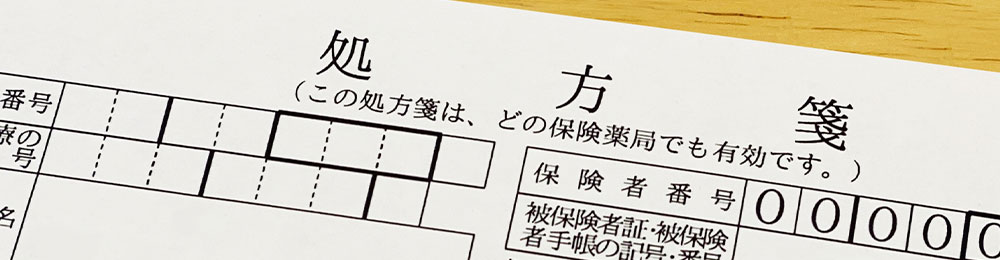 処方箋
（この処方箋は、どの保険薬局でも有効です。）
番号
療の
号
名
保険者番号 0 0 0 0 0
被保険者証・被保険
者手帳の記号・番号